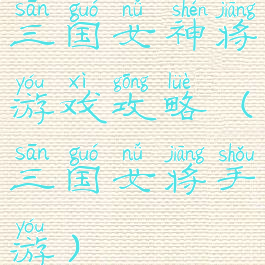 sān guó nǚ shén jiàng
三国女神将
yóu xì gōng lüè
游戏攻略（
sān guó nǚ jiāng shǒu
三国女将手
yóu
游）